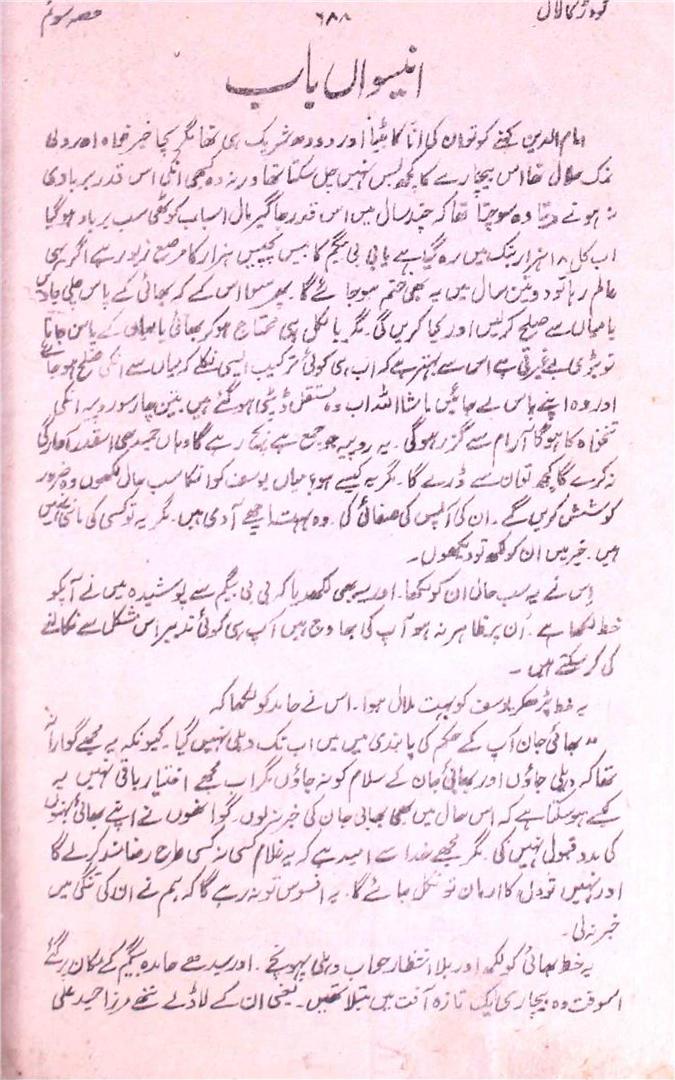 گودڑ کا لال ۶۸۸ حصہ سوم
انیسواں باب
امام الدین کہنے کو تو ان کی انا کا بیٹا اور دودھ شریک ہی تھا مگر سچا خیر خواہ اور دلی
نمک حلال تھا اس بیچارے کا کچھ بس نہیں چل سکتا تھا ورنہ وہ کبھی انکی اس قدر بربادی
نہ ہونے دیتا وہ سوچتا تھا کہ چند سال میں اس قدر جاگیر مال اسباب کوٹھی سب برباد ہو گیا
اب کل ۱۸ ہزار بنک میں رہ گیا ہے یا بی بی بیگم کا بیس پچیس ہزار کا مرصع زیور ہے اگر یہی
عالم رہا تو دو تین سال میں یہ بھی ختم ہو جائے گا۔ پھر سوا اس کے کہ بھائی کے پاس چلی جائیں
یا میاں سے صلح کر لیں اور کیا کریں گی۔ مگر بالکل ہی محتاج ہو کر بھائی یا میاں کے پاس جانا
تو بڑی بے غیرتی ہے اس سے بہتر ہے کہ اب ہی کوئی ترکیب ایسی نکلے کہ میاں سے انکی صلح ہو جائے
اور وہ اپنے پاس لے جائیں ماشااللہ اب وہ مستقل ڈپٹی ہو گئے ہیں۔ تین چار سو روپیہ انکی
تنخواہ کا ہو گا آرام سے گزر ہو گی۔ یہ روپیہ جو جمع ہے بچ رہے گا وہاں حمید بھی اسقدر آوارگی
نہ کرے گا کچھ تو ان سے ڈرے گا۔ مگر یہ کیسے ہو؟ میاں یوسف کو انکا سب حال لکھوں وہ ضرور
کوشش کریں گے۔ ان کی آپس کی صفائی کی۔ وہ بہت اچھے آدمی ہیں۔ مگر یہ تو کسی کی مانتی نہیں
ہیں۔ خیر میں ان کو لکھ تو دیکھوں۔
اس نے یہ سب حال ان کو لکھا۔ اور یہ بھی لکھدیا کہ بی بی بیگم سے پوشیدہ میں نے آپکو
خط لکھا ہے۔ ان پر ظاہر نہ ہو آپ کی بھاوج ہیں آپ ہی کوئی تدبیر اس مشکل سے نکالنے
کی کر سکتے ہیں۔
یہ خط پڑھکر یوسف کو بہت ملال ہوا۔ اس نے حامد کو لکھا کہ
"بھائی جان آپ کے حکم کی پابندی میں میں اب تک دہلی نہیں گیا۔ کیونکہ یہ مجھے گوارا نہ
تھا کہ دہلی جاؤں اور بھابی جان کے سلام کو نہ جاؤں مگر اب مجھے اختیار باقی نہیں یہ
کیسے ہو سکتا ہے کہ اس حال میں بھی بھابی جان کی خبر نہ لوں۔ گو انھوں نے اپنے بھائی بہنوں
کی مدد قبول نہیں کی۔ مگر مجھے خدا سے امید ہے کہ یہ غلام کسی نہ کسی طرح رضا مند کر لے گا
اور نہیں تو دل کا ارمان تو نکل جائے گا۔ یہ افسوس تو نہ رہے گا کہ ہم نے ان کی تنگی میں
خبر نہ لی۔
یہ خط بھائی کو لکھ اور بلا انتظار جواب دہلی پہونچے۔ اور سیدھے حامدہ بیگم کے مکان پر گئے
اسوقت وہ بیچاری ایک تازہ آفت میں مبتلا تھیں۔ یعنی ان کے لاڈلے ننھے مرزا حمید علی